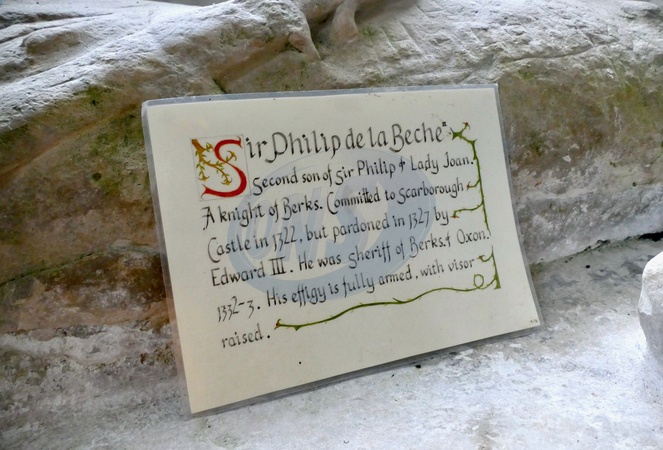 Sir Philip de la Beche"
Second son of Sir Philip & Lady Joan.
A knight of Berks. Committed to Scarborough
Castle in 1322, but pardoned in 1327 by
Edward III. He was sheriff of Berks. & Oxon.
1332-3. His effigy is fully armed, with visor
raised.